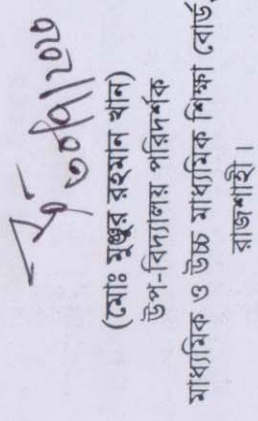 ৩০/৭/২০২৩
(মোঃ মুঞ্জুর রহমান খান)
উপ-বিদ্যালয় পরিদর্শক
মাধ্যমিক ও উচ্চ মাধ্যমিক শিক্ষা বোর্ড,
রাজশাহী।